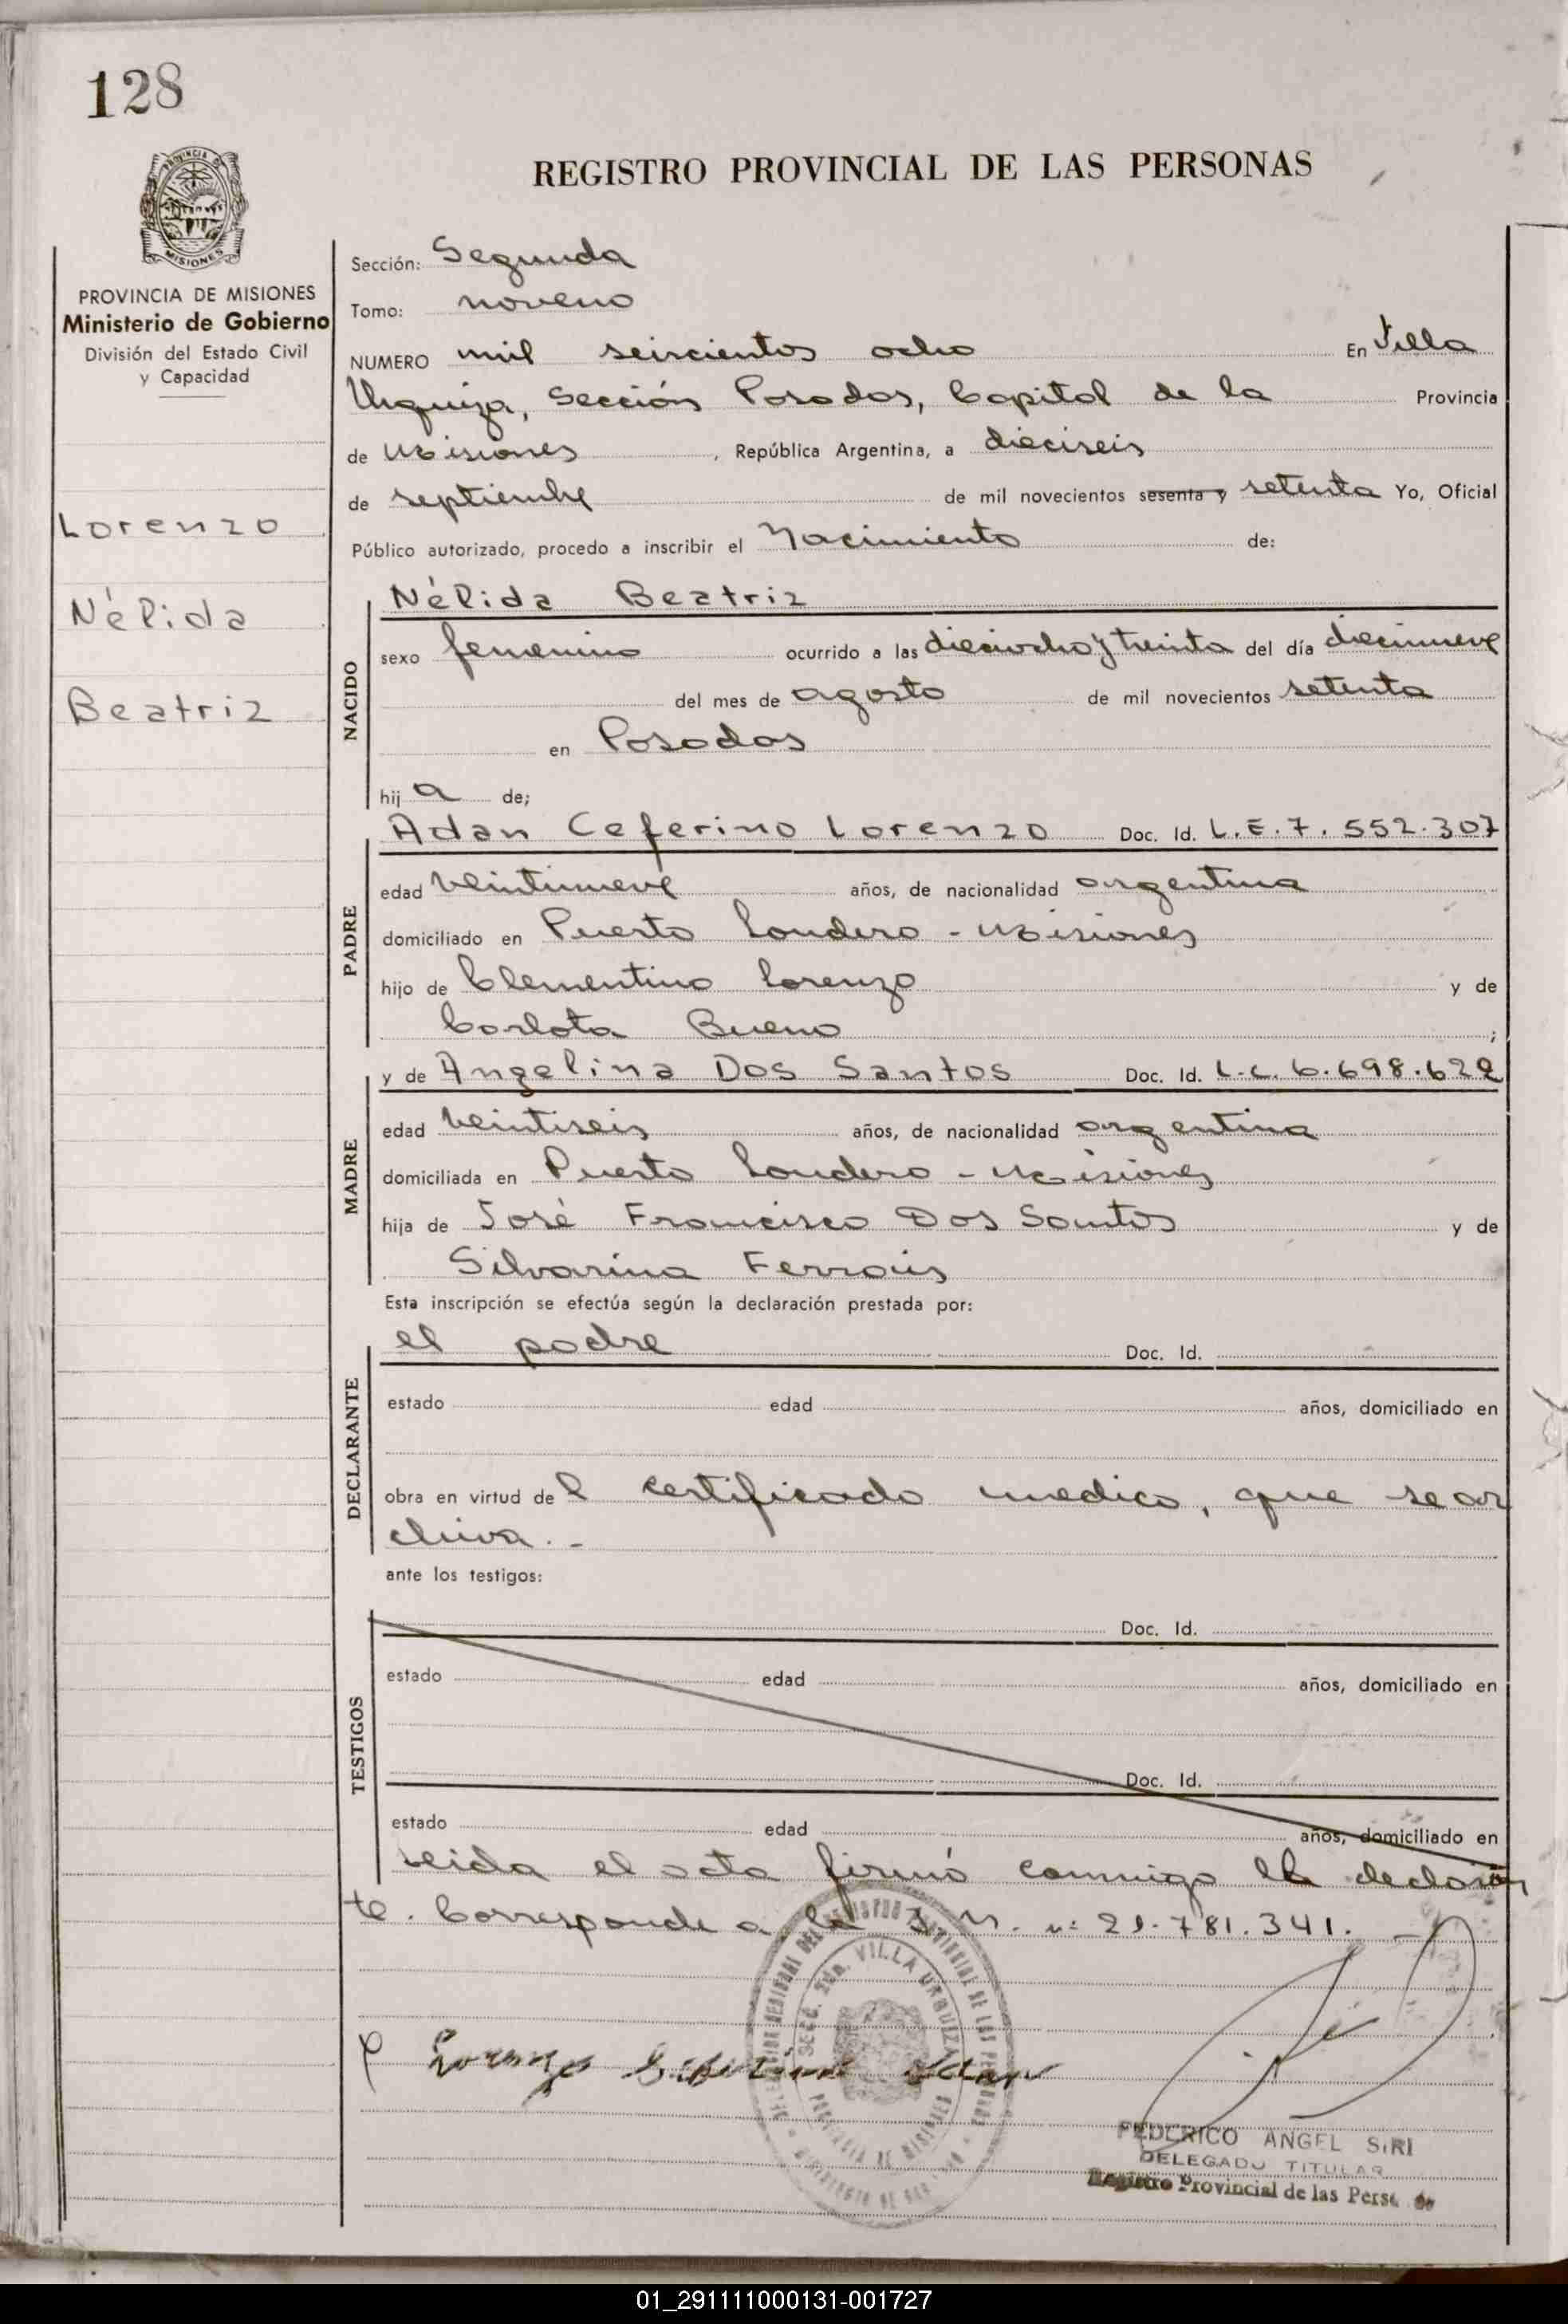 128
REGISTRO PROVINCIAL DE LAS PERSONAS
PROVINCIA DE MISIONES
Ministerio de Gobierno
División del Estado Civil
y Capacidad
Lorenzo
Nélida
Beatriz
Sección: Segunda
Tomo: noveno
NUMERO mil seiscientos ocho En Villa
Urquiza, Sección Posadas, Capital de la Provincia
de Misiones, República Argentina, a dieciseis
de septiembre de mil novecientos sesenta y setenta Yo, Oficial
Público autorizado, procedo a inscribir el Nacimiento de:
NACIDO
Nélida Beatriz
sexo femenino ocurrido a las dieciocho y treinta del día diecinueve
del mes de agosto de mil novecientos setenta
en Posadas
hij a de;
PADRE
Adan Ceferino Lorenzo Doc. Id. L.E. 7.552.307
edad veintinueve años, de nacionalidad argentina
domiciliado en Puerto Londero - Misiones
hijo de Clementino Lorenzo y de
Carlota Bueno ;
MADRE
y de Angelina Dos Santos Doc. Id. L.C. 6.698.622
edad veintiseis años, de nacionalidad argentina
domiciliada en Puerto Londero - Misiones
hija de José Francisco Dos Santos y de
Silvarina Ferrais
Esta inscripción se efectúa según la declaración prestada por:
DECLARANTE
el padre Doc. Id.
estado edad años, domiciliado en
obra en virtud del certificado medico, que se ar
chiva. -
ante los testigos:
TESTIGOS
Doc. Id.
estado edad años, domiciliado en
Doc. Id.
estado edad años, domiciliado en
Leida el acta firmó conmigo el declaran
te. Corresponde a la M. nº 21.781.341. -
SECC. 2da. VILLA URQUIZA
PROVINCIA DE MISIONES
Lorenzo Ceferino Adan
FEDERICO ANGEL SIRI
DELEGADO TITULAR
Registro Provincial de las Pers
01_291111000131-001727